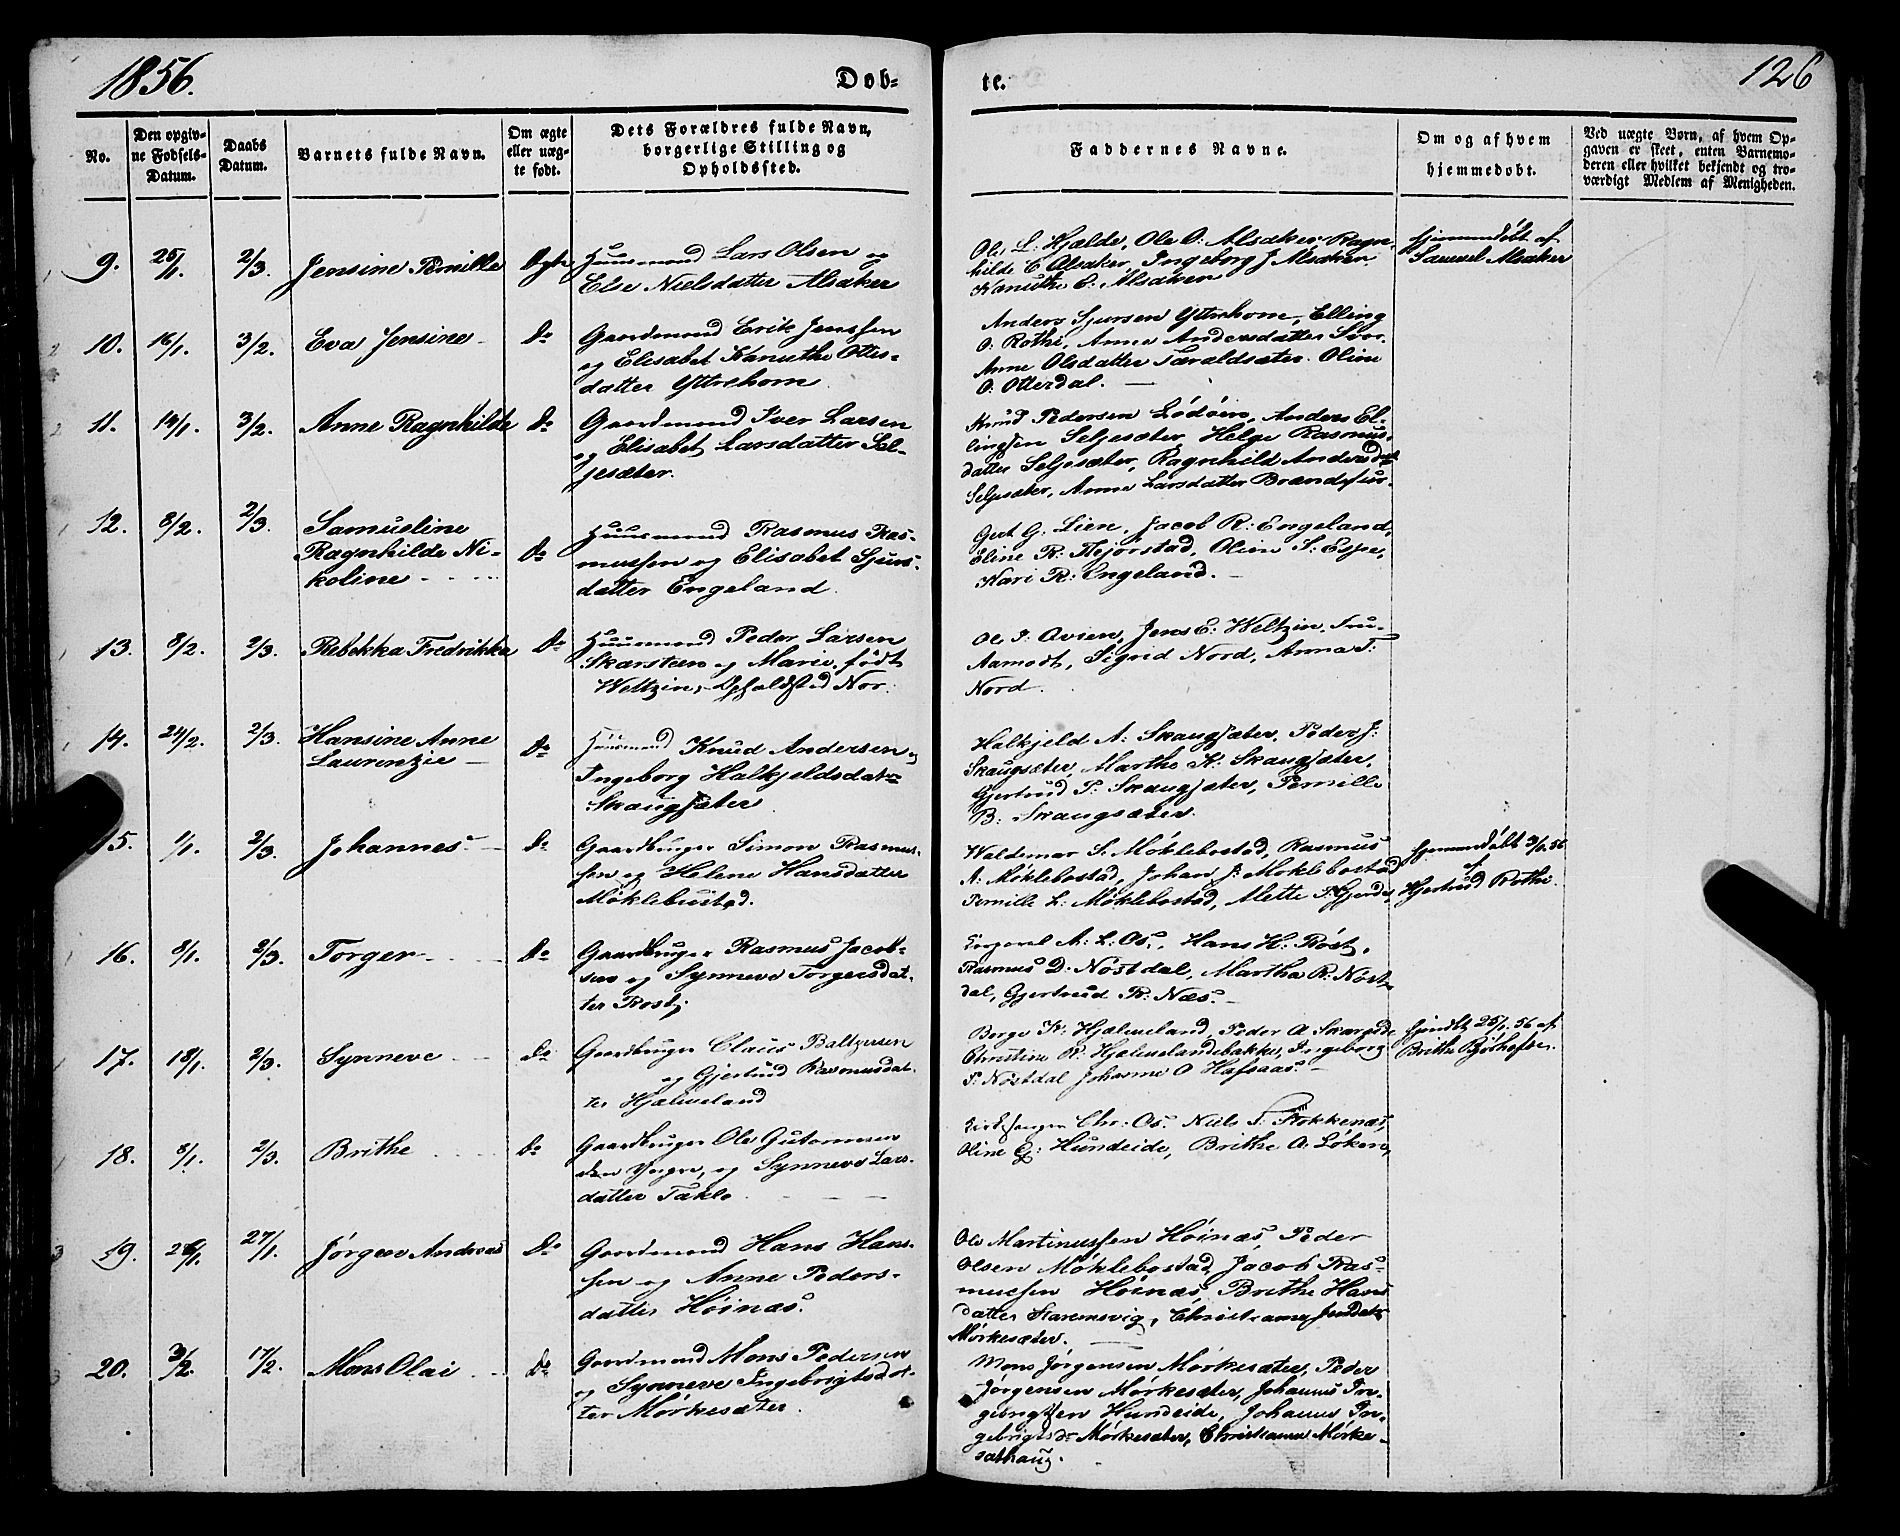 1856.
Døb=
te.
126
No.
Den opgiv-
ne Fødsels-
Datum.
Daabs
Datum.
Barnets fulde Navn.
Om ægte
eller uæg-
te født.
Dets Forældres fulde Navn,
borgerlige Stilling og
Opholdssted.
Faddernes Navne.
Om og af hvem
hjemmedøbt.
Ved uægte Børn, af hvem Op-
gaven er skeet, enten Barnemo-
deren eller hvilket bekjendt og tro-
værdigt Medlem af Menigheden.
9. 25/1. 2/3. Jensine Pernille Ægte
Huusmand Lars Olsen og
Else Nielsdatter Alsaker
Ole L. Hjelde, Ole O: Alsaker, Ragn-
hilde E Alsaker, Ingeborg J Alsaker
Kanuthe E: Alsaker
Hjemmedöbt af
Samuel Alsaker
10. 16/1. 3/2. Eva Jensine Do
Gaardmand Erik Jenssen
og Elisabet Kanuthe Ottes-
datter Yttrehorn.
Anders Sjursen Yttrehorn, Elling
O. Rothe, Anne Andersdatter
Anne Olsdatter Taraldsæter. Oline
O. Otterdal.
11. 14/1. 3/2. Anne Ragnhilde Do
Gaardmand Iver Larsen
og Elisabet Larsdatter Sel-
jesæter.
Knud Pedersen Lödöen, Anders El-
lingsen Seljesæter, Helge Rasmus-
datter Seljesæter, Ragnhild Andersdat
Seljesæter, Anne Larsdatter
12. 8/2. 2/3. Samueline
Ragnhilde Ni-
koline Do
Huusmand Rasmus Ras-
mussen og Elisabet Sjurs-
datter Engeland.
Gert G. Lien, Jacob R: Engeland,
Eline R. Hejorstad, Olien S. Espe,
Kari R: Engeland.
13. 8/2. 2/3. Rebekka Fredrikke Do
Huusmand Peder Larsen
Skarsteen og Marie, född
Weltzin, Opholdsted Nor.
Ole I. Qvien, Jens E. Weltzin, Fru
Aamodt, Sigrid Nord, Anna T.
Nord.
14. 24/2. 2/3. Hansine Anne
Laurenzie Do
Huusmand Knud Andersen og
Ingeborg Halkjeldsdatr
Skaugsæter
Halkjeld A. Skaugsæter, Peder J.
Skaugsæter, Marthe K. Skaugsæter,
Gjertrud P. Skaugsæter, Pernille
B. Skaugsæter.
15. 1/1. 2/3. Johannes Do
Gaardbruger Simon Rasmus-
sen og Helene Hansdatter
Möklebustad.
Waldemar S. Möklebostad, Rasmus
A. Möklebostad, Johan J. Moklebostad
Pernille L. Möklebostad, Mette
Hjemmedöbt 3/1 56
af
Gjertrud Rothe.
16. 8/1. 2/3. Torger Do
Gaardbruger Rasmus Jacob-
sen og Synneve Torgersdat-
ter Rost,
Korporal A. L: Os, Hans H. Röst,
Rasmus D. Nöstdal, Martha R. Nöst-
dal, Gjertrud R. Næs.
17. 18/1. 2/3. Synneve Do
Gaardbruger Claus Baltzersen
og Gjertrud Rasmusdat-
ter Hjelmeland
Börge K. Hjelmeland, Peder A Skarsde
Christine R. Hjelmelandsbakke, Ingeborg
P. Nöstdal Johanne O Hafsaas
Hjmdbt 25/1. 56 af
Brithe
18. 8/1. 2/3. Brithe Do
Gaardbruger Ole Guttormsen
den Yngre, og Synneve Lars-
datter Takle
Kirkesanger Chr: Os. Niels S. Stokkenæs,
Oline G: Hundeide, Brithe A. Løken,
19. 26/1. 27/1. Jörgen Andreas Do
Gaardmand Hans Hans-
sen og Anne Peders-
datter Höinæs.
Ole Martinussen Höinæs Peder
Olsen Möklebostad, Jacob Ras-
mussen Höinæs, Brithe Hans
datter Staremsvig, Christianne Jensdatr
Mörkesæter.
20. 3/2. 17/2. Mons Olai Do
Gaardmand Mons Pedersen
og Synneve Ingebrigtsdat-
ter Mörkesæter.
Mons Jörgensen Mörkesæter, Peder
Jörgensen Mörkesæter, Johannes In-
gebrigtsen Hundeide, Johanne In-
gebrigtsdr Mörkesæter, Christianne Mörke-
sæthaug.